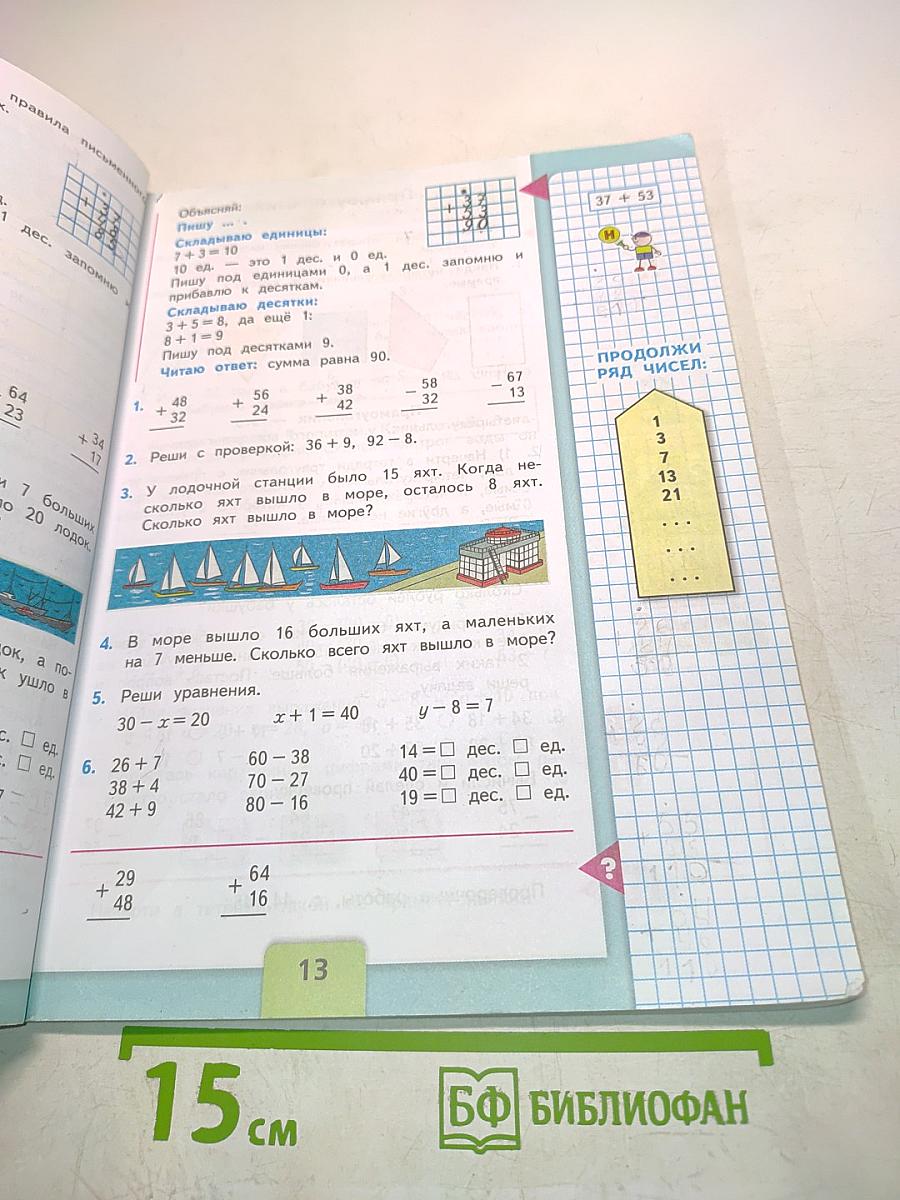 правила письменного
х.
1 дес. запомню и
64
23
+ 34
17
и 7 больших
ло 20 лодок.
ок, а по-
к ушло в
с. □ ед.
с. □ ед.
Объясняй:
Пишу ... .
Складываю единицы:
7 + 3 = 10
10 ед. — это 1 дес. и 0 ед.
Пишу под единицами 0, а 1 дес. запомню и
прибавлю к десяткам.
Складываю десятки:
3 + 5 = 8, да ещё 1:
8 + 1 = 9
Пишу под десятками 9.
Читаю ответ: сумма равна 90.
+ 37
53
90
1. + 48 + 56 + 38 − 58 − 67
32 24 42 32 13
2. Реши с проверкой: 36 + 9, 92 − 8.
3. У лодочной станции было 15 яхт. Когда не-
сколько яхт вышло в море, осталось 8 яхт.
Сколько яхт вышло в море?
4. В море вышло 16 больших яхт, а маленьких
на 7 меньше. Сколько всего яхт вышло в море?
5. Реши уравнения.
30 − x = 20 x + 1 = 40 y − 8 = 7
6. 26 + 7 60 − 38 14 = □ дес. □ ед.
38 + 4 70 − 27 40 = □ дес. □ ед.
42 + 9 80 − 16 19 = □ дес. □ ед.
+ 29 + 64
48 16
?
13
37 + 53
Н
ПРОДОЛЖИ
РЯД ЧИСЕЛ:
1
3
7
13
21
...
...
...
15 см
БФ БИБЛИОФАН